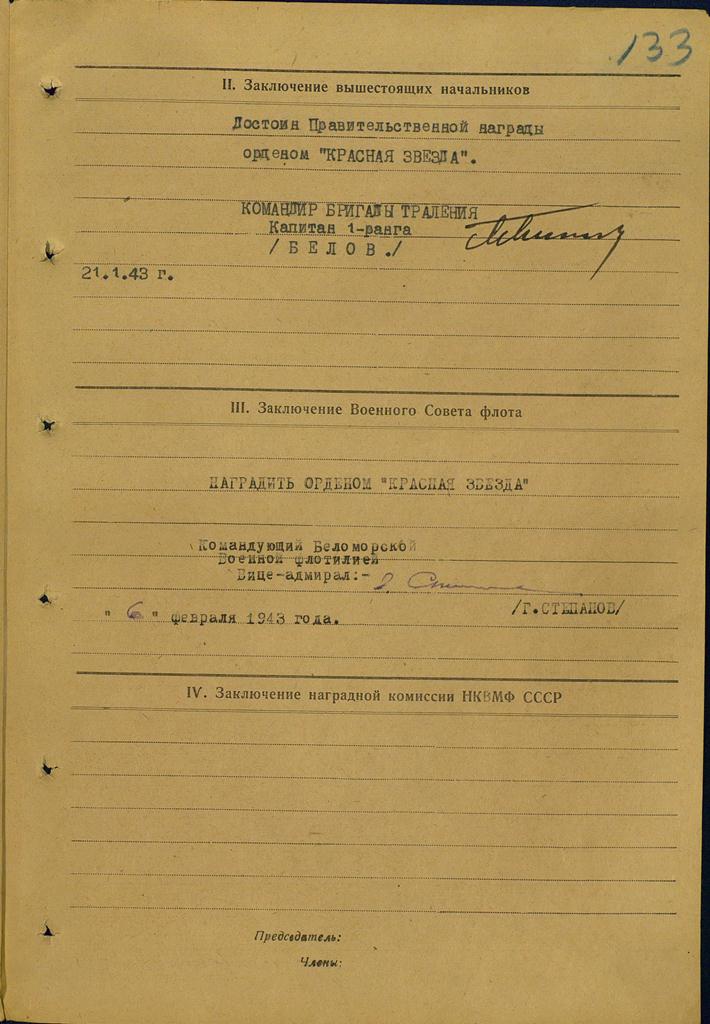 133
II. Заключение вышестоящих начальников
Достоин Правительственной награды
орденом "КРАСНАЯ ЗВЕЗДА".
КОМАНДИР БРИГАДЫ ТРАЛЕНИЯ
Капитан 1-ранга
/ Б Е Л О В ./
21.1.43 г.
III. Заключение Военного Совета флота
НАГРАДИТЬ ОРДЕНОМ "КРАСНАЯ ЗВЕЗДА"
Командующий Беломорской
Военной флотилией
Вице-адмирал:-
/Г.СТЕПАНОВ/
" 6 " февраля 1943 года.
IV. Заключение наградной комиссии НКВМФ СССР
Председатель:
Члены: